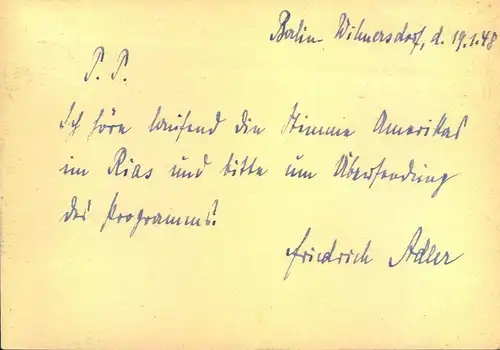 Berlin-Wilmersdorf, d. 19.1.48
P. P.
Ich höre laufend die Stimme Amerikas
im Rias und bitte um Übersendung
des Programms.
Friedrich Adler